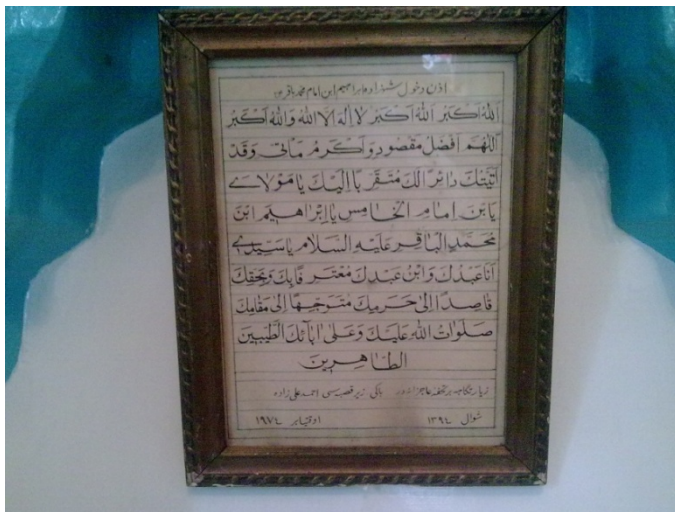 اذن دخول شهزاده ابراهیم ابن امام محمد باقر ع
اَللهُ اَکْبَرُ اَللهُ اَکْبَرُ لَا اِلٰهَ اِلَّا اللهُ وَاللهُ اَکْبَرُ
اَللّٰهُمَّ اَفْضَلُ مَقْصُودٍ وَاَکْرَمُ مَأْتِیٍّ وَقَدْ
اَتَیْتُكَ زَائِرًا لَكَ مُتَقَرِّبًا اِلَیْكَ یَا مَوْلَایَ
یَا بْنَ اِمَامِ الْخَامِسِ یَا اِبْرَاهِیْمَ ابْنَ
مُحَمَّدِ الْبَاقِرِ عَلَیْهِ السَّلَامُ یَا سَیِّدِی
اَنَا عَبْدُكَ وَابْنُ عَبْدِكَ مُعْتَرِفًا بِكَ وَبِحَقِّكَ
قَاصِدًا اِلٰی حَرَمِكَ مُتَوَجِّهًا اِلٰی مَقَامِكَ
صَلَوَاتُ اللهِ عَلَیْكَ وَعَلٰی اٰبَائِكَ الطَّیِّبِیْنَ
الطَّاهِرِیْنَ
احمد علی زاده
شوال ۱۳۹٤